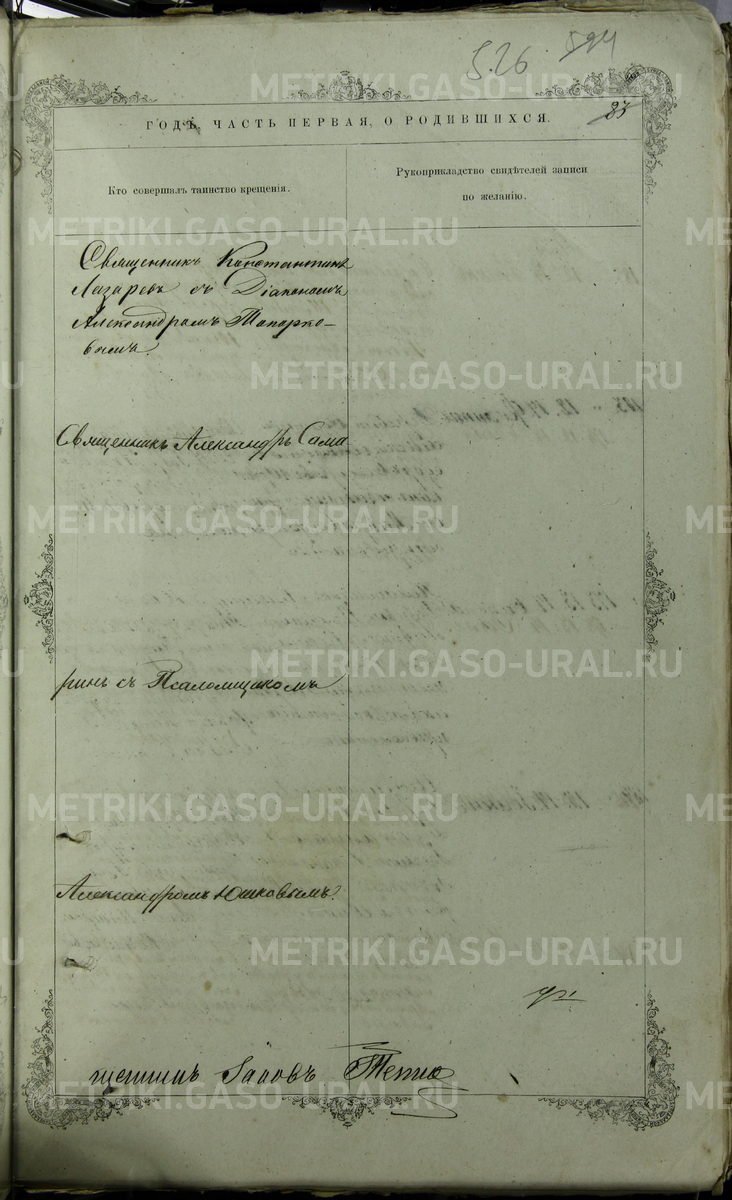 5.26 594
83
ГОДЪ, ЧАСТЬ ПЕРВАЯ, О РОДИВШИХСЯ.
Кто совершалъ таинство крещенія.
Рукоприкладство свидѣтелей записи
по желанію.
Священникъ Константинъ
Лазаревъ съ Діакономъ
Александромъ Топорко-
вымъ.
Священникъ Александръ Сама
ринъ съ Псаломщикомъ
Александромъ Юшковымъ.
METRIKI.GASO-URAL.RU